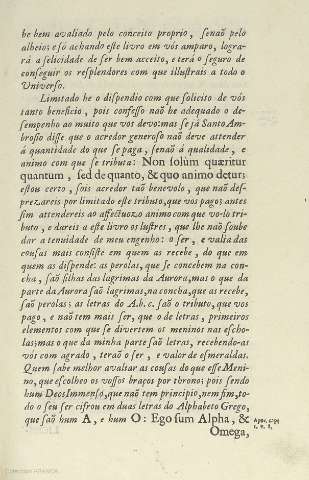 he bem avaliado pelo conceito proprio, senaõ pelo
alheio: e so achando este livro em vòs amparo, logra-
rá a felicidade de ser bem acceito, e terá o seguro de
conseguir os resplendores com que illustrais a todo o
Universo.
Limitado he o dispendio com que solicito de vòs
tanto beneficio, pois confesso naõ he adequado o de-
sempenho ao muito que vos devo: mas se já Santo Am-
brosio disse que o acredor generoso naõ deve attender
á quantidade do que se paga, senaõ á qualidade, e
animo com que se tributa: Non solùm quæritur
quantum, sed de quanto, & quo animo detur:
estou certo, sois acredor taõ benevolo, que naõ des-
prezareis por limitado este tributo, que vos pago: antes
sim attendereis ao affectuozo animo com que vo-lo tri-
buto, e dareis a este livro os lustres, que lhe naõ soube
dar a tenuidade de meu engenho: o ser, e valia das
cousas mais consiste em quem as recebe, do que em
quem as dispende: as perolas, que se concebem na con-
cha, saõ filhas das lagrimas da Aurora, mas o que da
parte da Aurora saõ lagrimas, na concha, que as recebe,
saõ perolas: as letras do A.b.c. saõ o tributo, que vos
pago, e naõ tem mais ser, que o de letras, primeiros
elementos com que se divertem os meninos nas escho-
las: mas o que da minha parte saõ letras, recebendo-as
vòs com agrado, teraõ o ser, e valor de esmeraldas.
Quem sabe melhor avaltar as cousas do que esse Meni-
no, que escolheo os vossos braços por throno; pois sendo
hum Deos Immenso, que naõ tem principio, nem fim, to-
do o seu ser cifrou em duas letras do Alphabeto Grego,
que saõ hum A, e hum O: Ego sum Alpha, &
Omega,